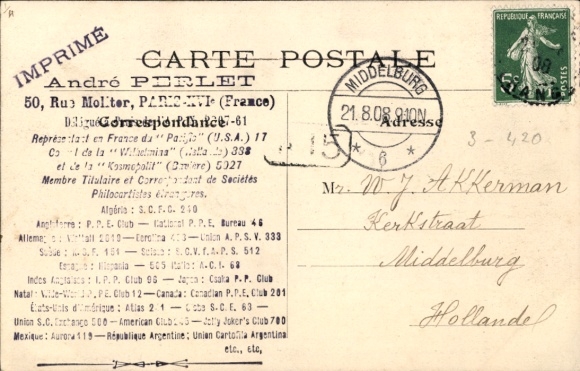 IMPRIMÉ
CARTE POSTALE
André PERLET
50, Rue Molitor, PARIS-XVIe (France)
Correspondance
Adresse
Représentant en France du "Pacific" (U.S.A.) 17
de la "Wilhelmina" 338
et de la "Kosmopolit" (Bavière) 5027
Membre Titulaire et Correspondant de Sociétés
Philocartistes étrangères.
Algérie : S.C.F.G. 240
Angleterre : P.P.E. Club — National P.P.E. Bureau 46
Union A.P.S.V. 333
S.E.C.V.f.A.P.S. 512
Espagne : Hispania — 505 Italie : A.C.I. 68
Indes Anglaises : I.P.P. Club 96 — Japon : Osaka P.P. Club
Club 12 — Canada : Canadian P.P.E. Club 201
États-Unis d'Amérique : Atlas 63 —
Union S.C. Exchange 500 — American Club — Jolly Joker's Club 700
Mexique : Aurora 119 — République Argentine : Union Cartofila Argentina
etc., etc,
RÉPUBLIQUE FRANÇAISE
POSTES
MIDDELBURG
21.8.08 9-10N
* 6 *
15
3 - 420
Mr. W J. AKKerman
Kerkstraat
Middelburg
Hollande